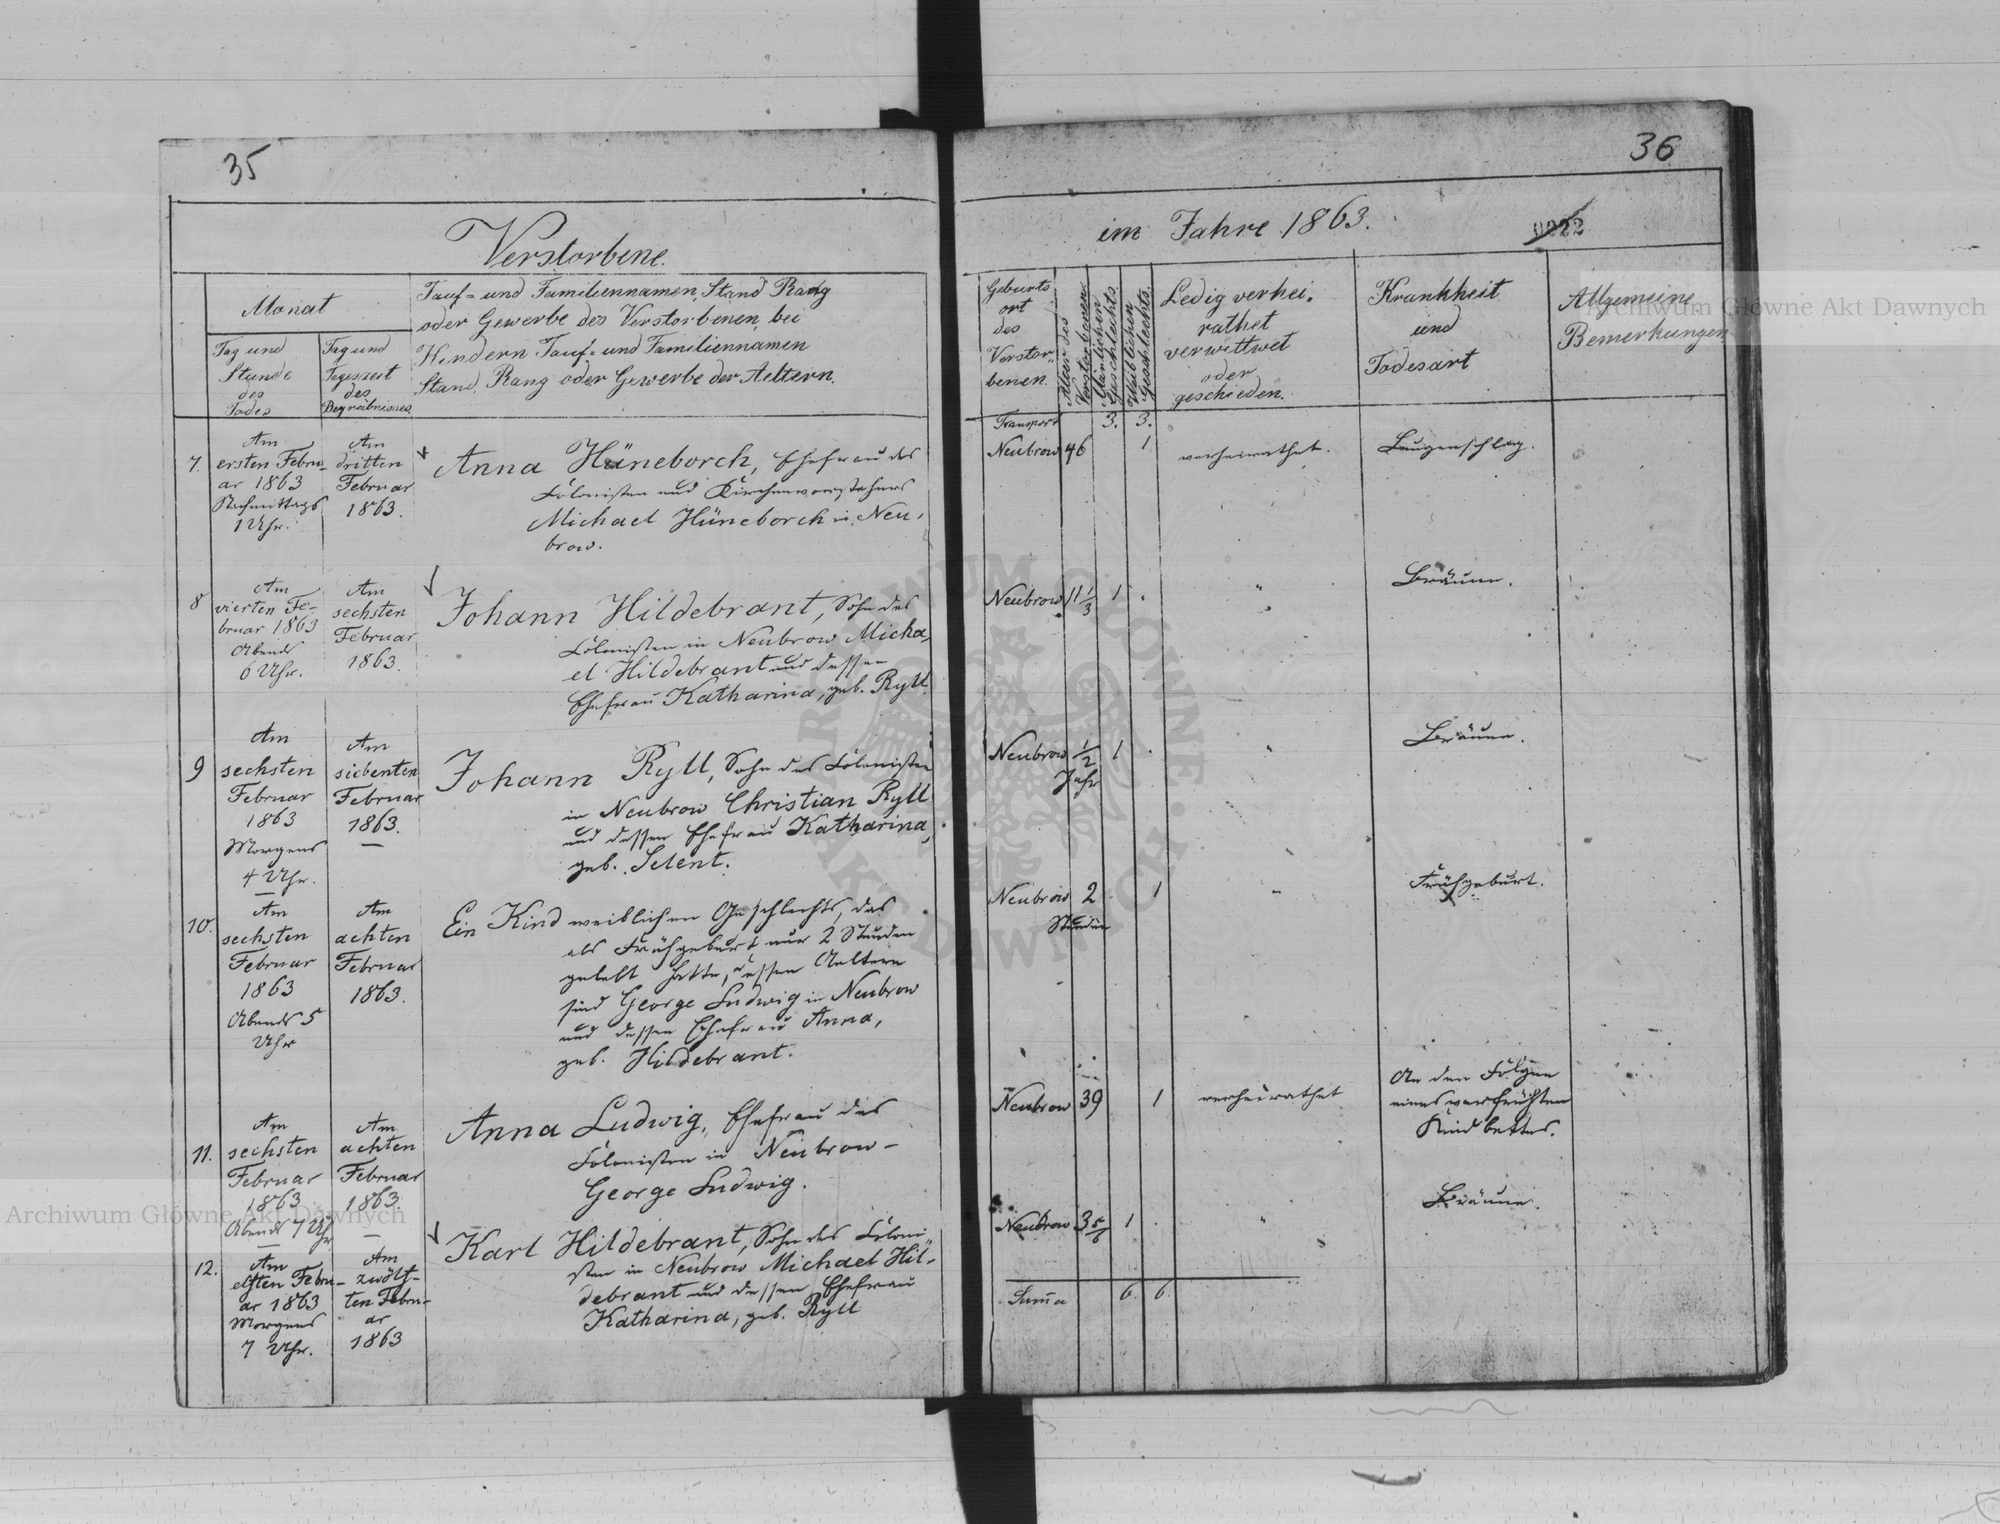 35
Verstorbene.
Monat
Tag und
Stunde
des
Todes
Tag und
Tageszeit
des
Begräbnisses
Tauf- und Familiennamen, Stand Rang
oder Gewerbe des Verstorbenen, bei
Kindern Tauf- und Familiennamen
Stand, Rang oder Gewerbe der Aeltern.
7.
Am
ersten Febru-
ar 1863
Nachmittags
1 Uhr.
Am
dritten
Februar
1863.
Anna Hüneborch, Ehefrau des
Colonisten und Kirchenvorstehers
Michael Hüneborch in Neu-
brow.
8
Am
vierten Fe-
bruar 1863
Abends
6 Uhr.
Am
sechsten
Februar
1863.
Johann Hildebrant, Sohn des
Colonisten in Neubrow Micha-
el Hildebrant und dessen
Ehefrau Katharina, geb. Ryll.
9
Am
sechsten
Februar
1863
Morgens
4 Uhr.
Am
siebenten
Februar
1863.
Johann Ryll, Sohn des Colonisten
in Neubrow Christian Ryll
und dessen Ehefrau Katharina,
geb. Selent.
10.
Am
sechsten
Februar
1863
Abends 5
Uhr
Am
achten
Februar
1863.
Ein Kind weiblichen Geschlechts, das
als Frühgeburt nur 2 Stunden
gelebt hatte, dessen Aeltern
sind George Ludwig in Neubrow
und dessen Ehefrau Anna,
geb. Hildebrant.
11.
Am
sechsten
Februar
1863
Abends 7 Uhr
Am
achten
Februar
1863.
Anna Ludwig, Ehefrau des
Colonisten in Neubrow-
George Ludwig.
12.
Am
elften Febru-
ar 1863
Morgens
7 Uhr.
Am
zwölf-
ten Febru-
ar
1863
Karl Hildebrant, Sohn des Coloni-
sten in Neubrow Michael Hil-
debrant und dessen Ehefrau
Katharina, geb. Ryll
36
im Jahre 1863.
0022
Geburts
ort
des
Verstor-
benen.
Alter des
Verstorbenen
Mänlichen
Geschlechts
Weiblichen
Geschlechts.
Ledig verhei-
rathet
verwittwet
oder
geschieden.
Krankheit
und
Todesart
Allgemeine
Bemerkungen
Transport 3. 3.
Neubrow 46 1 verheirathet.
Neubrow 11 1/3 1 " Bräune.
Neubrow 1/2 1 " Bräune.
Jahr
Neubrow 2 1 " Frühgeburt.
Stunden
Neubrow 39 1 verheirathet An den Folgen
eines verfrühten
Kindbettes.
Neubrow 3 5/6 1 " Bräune.
Summa 6. 6.
Archiwum Główne Akt Dawnych
Archiwum Główne Akt Dawnych
ARCHIWUM GŁÓWNE AKT DAWNYCH